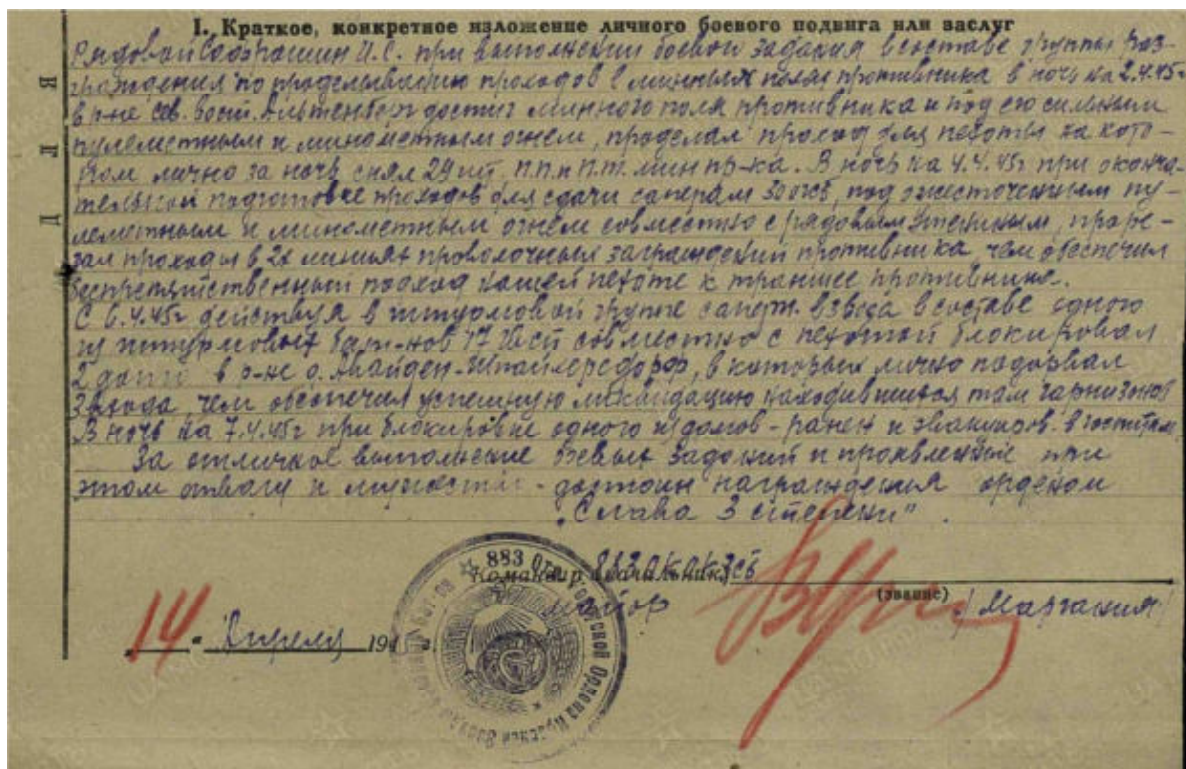 I. Краткое, конкретное изложение личного боевого подвига или заслуг
Рядовой И.С. при выполнении боевой задания в составе группы раз-
граждения по проделыванию проходов в минных полях противника в ночь на 2.4.45г
в р-не сев. вост. Альтенберг достиг минного поля противника и под его сильным
пулеметным и минометным огнем, проделал проход для пехоты на кото-
ром лично за ночь снял 29 шт. п.п и п.т. мин пр-ка. В ночь на 4.4.45г при оконча-
тельной подготовке проходов для сдачи саперам под ожесточенным пу-
леметным и минометным огнем совместно с рядовым проре-
зал проходы в 2х линиях проволочных заграждений противника, чем обеспечил
беспрепятственный подход нашей пехоте к траншее противника.
С 6.4.45г действуя в штурмовой группе саперн. взвода в составе одного
из штурмовых бат-нов 17 совместно с пехотой блокировал
2 в р-не, в которых лично подорвал
3 входа, чем обеспечил успешную ликвидацию находившихся там гарнизонов
В ночь на 7.4.45г при блокировке одного из домов - ранен и эвакуиров. в госпиталь
За отличное выполнение боевых заданий и проявленные при
этом отвагу и мужество - достоин награждения орденом
"Слава 3 степени".
883
Командир (начальник)
(звание)
майор /Маргания/
14 " Апреля 194
ДЛЯ